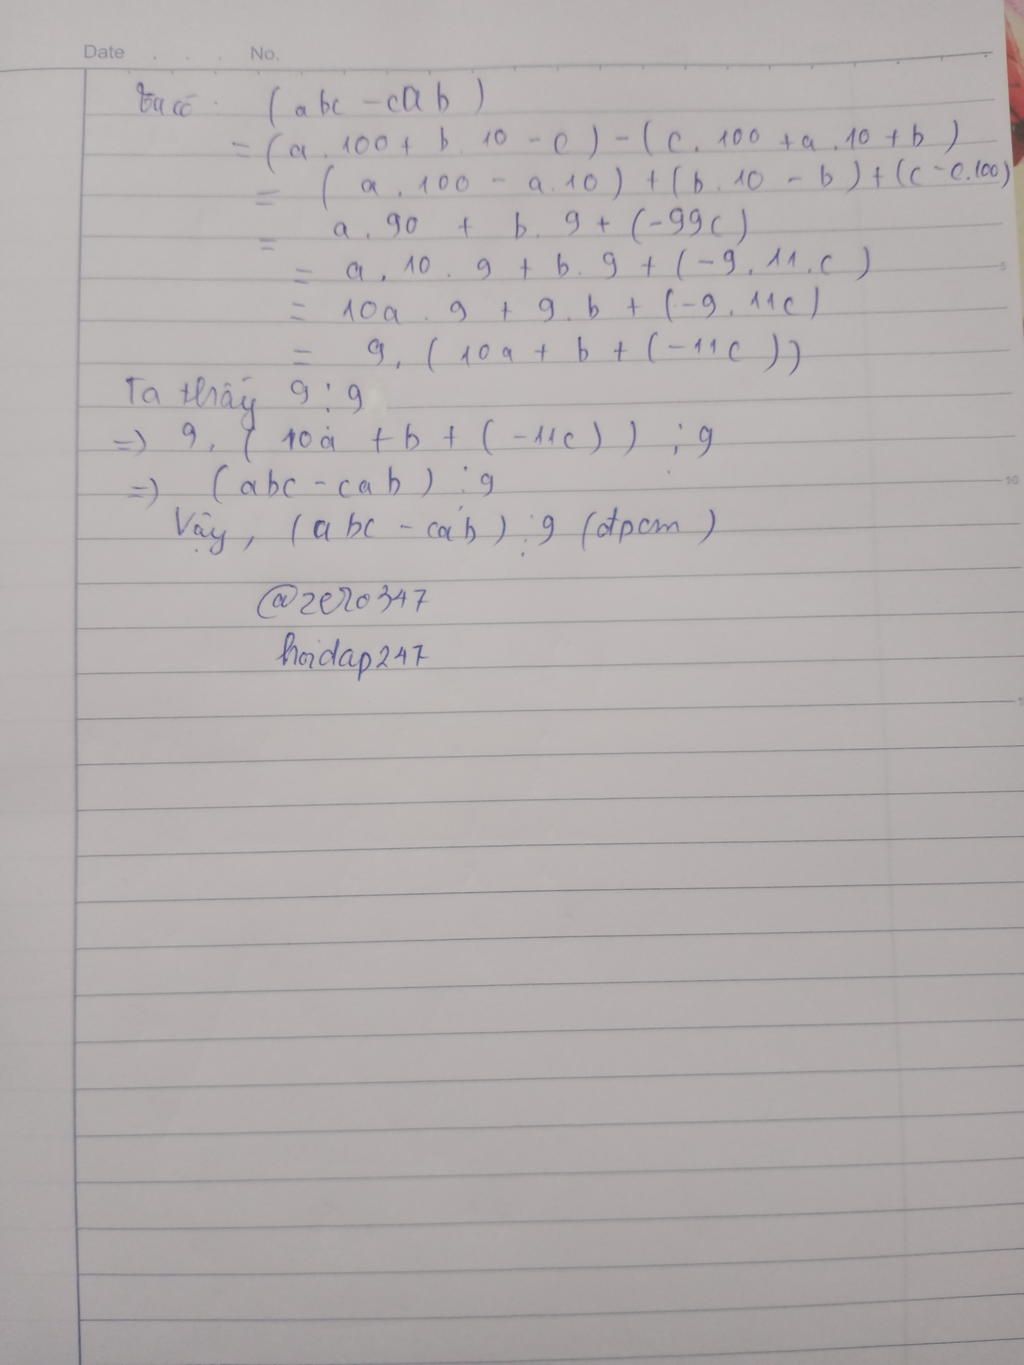 Date . . . No.
Ta có: (abc - cab)
= (a.100 + b.10 - c) - (c.100 + a.10 + b)
= (a.100 - a.10) + (b.10 - b) + (c - c.100)
= a.90 + b.9 + (-99c)
= a.10.9 + b.9 + (-9.11.c)
= 10a.9 + 9.b + (-9.11c)
= 9.(10a + b + (-11c))
Ta thấy 9⋮9
=> 9.(10a + b + (-11c))⋮9
=> (abc - cab)⋮9
Vậy, (abc - cab)⋮9 (đpcm)
@zero347
hoidap247
5
10